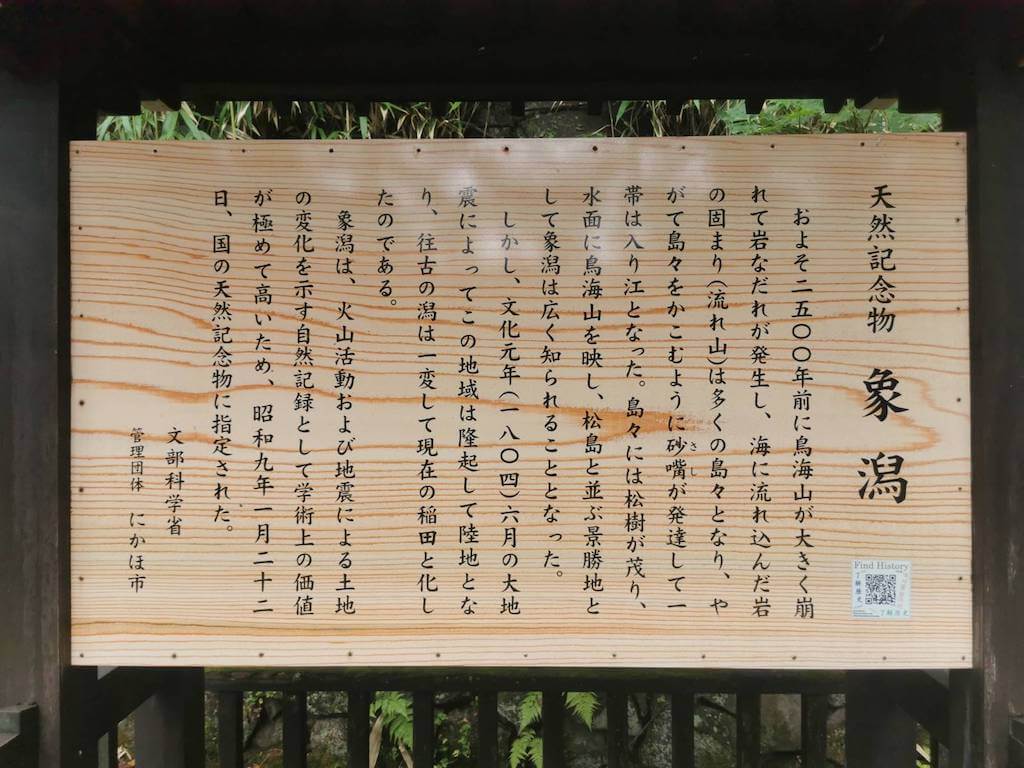 天然記念物 象潟
およそ二五〇〇年前に鳥海山が大きく崩
れて岩なだれが発生し、海に流れ込んだ岩
の固まり(流れ山)は多くの島々となり、や
がて島々をかこむように砂嘴が発達して一
さし
帯は入り江となった。島々には松樹が茂り、
水面に鳥海山を映し、松島と並ぶ景勝地と
して象潟は広く知られることとなった。
しかし、文化元年(一八〇四)六月の大地
震によってこの地域は隆起して陸地とな
り、往古の潟は一変して現在の稲田と化し
たのである。
象潟は、火山活動および地震による土地
の変化を示す自然記録として学術上の価値
が極めて高いため、昭和九年一月二十二
日、国の天然記念物に指定された。
文部科学省
管理団体 にかほ市
Find History
了解歴史
了解歷史